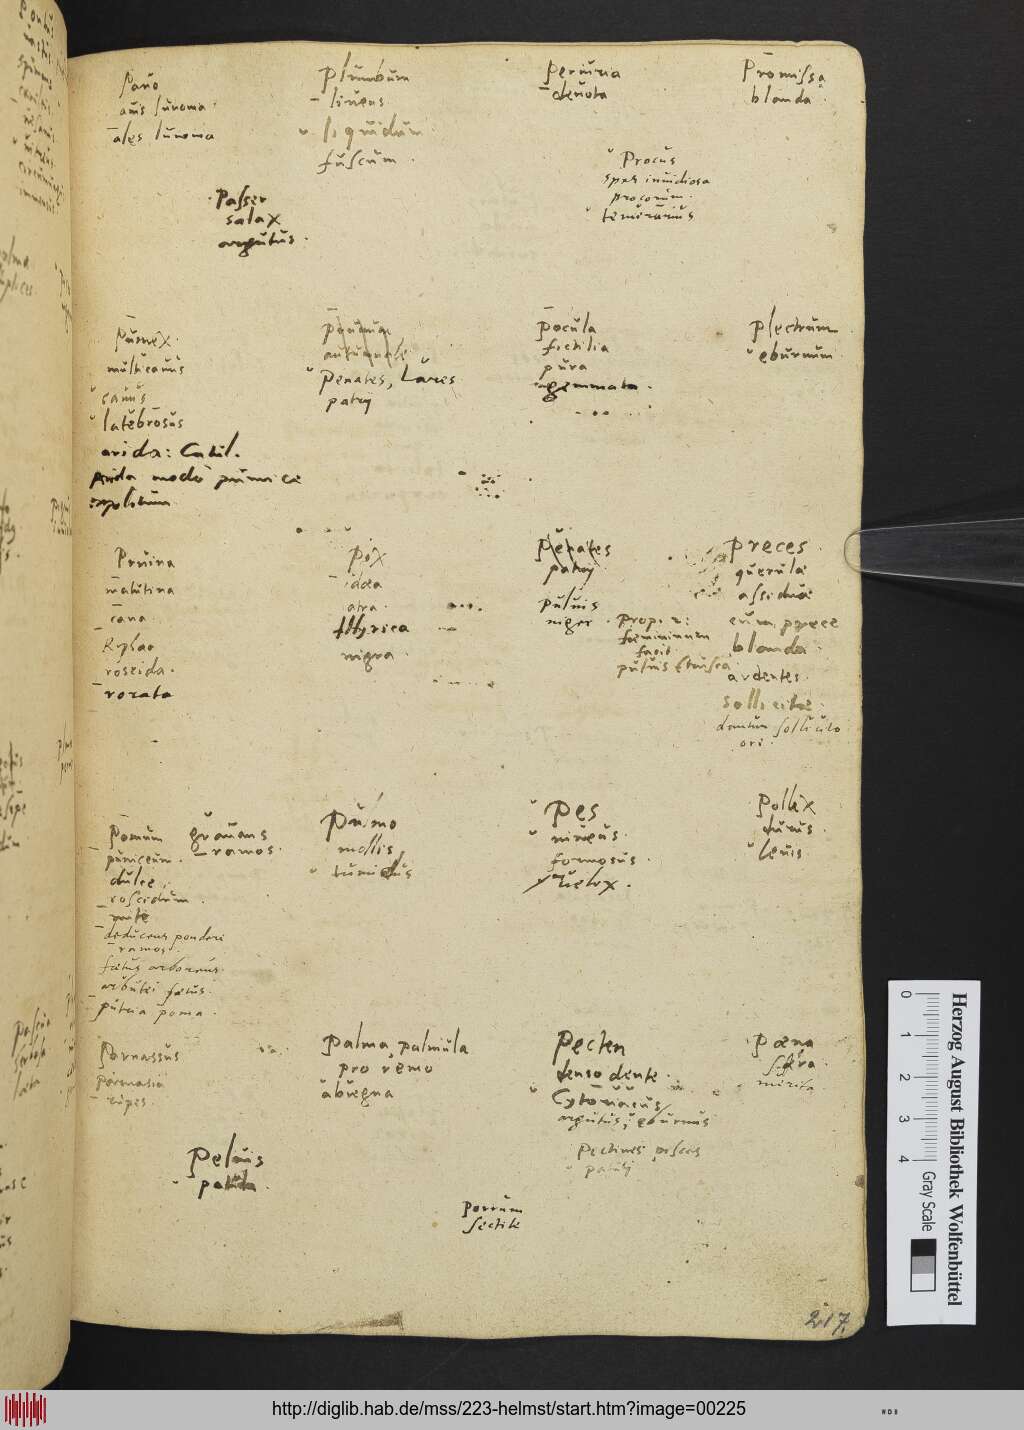 Pauo
auis Iunonia.
ales Iunonia
Plumbum
liuens
liquidum
fuscum.
periuria
deuota
Promissa
blanda
Passer
salax
argutus.
Procus
spes inuidiosa
procorum.
temerarius
Pumex.
multicauus
cauus
latebrosus
arida: Catul.
Arida modo pumice
expolitum
autumnale
Penates, Lares
patrij
Pocula
fictilia
pura
gemmata.
plectrum
eburnum
Pruina
matutina
cana.
roscida.
rorata
Pix
idaea
atra.
Illyrica
nigra.
Penates
patrij
puluis
niger.
Prop. 2:
foemininum
facit
puluis Etrusca
Preces
querulae
assiduae
cum prece
blanda.
ardentes.
sollicitae
Pomum
puniceum.
dulce.
roscidum.
mite
deducens pondere
ramos.
foetus arboreus.
arbutei foetus.
putria poma.
grauans
ramos.
Pulmo
mollis
tumidus
Pes
niueus.
formosus.
velox.
Pollex
durus.
leuis.
Parnassus
parnasia
rupes.
Palma, palmula
pro remo
abiegna
Pecten
denso dente.
Cytoriacus
argutus, eburnus
Pectines pisces
patuli
Poena
sera.
merita.
Peluis
patula.
porrum
sectile
217.
Herzog August Bibliothek Wolfenbüttel
0 1 2 3 4
Gray Scale
http://diglib.hab.de/mss/223-helmst/start.htm?image=00225